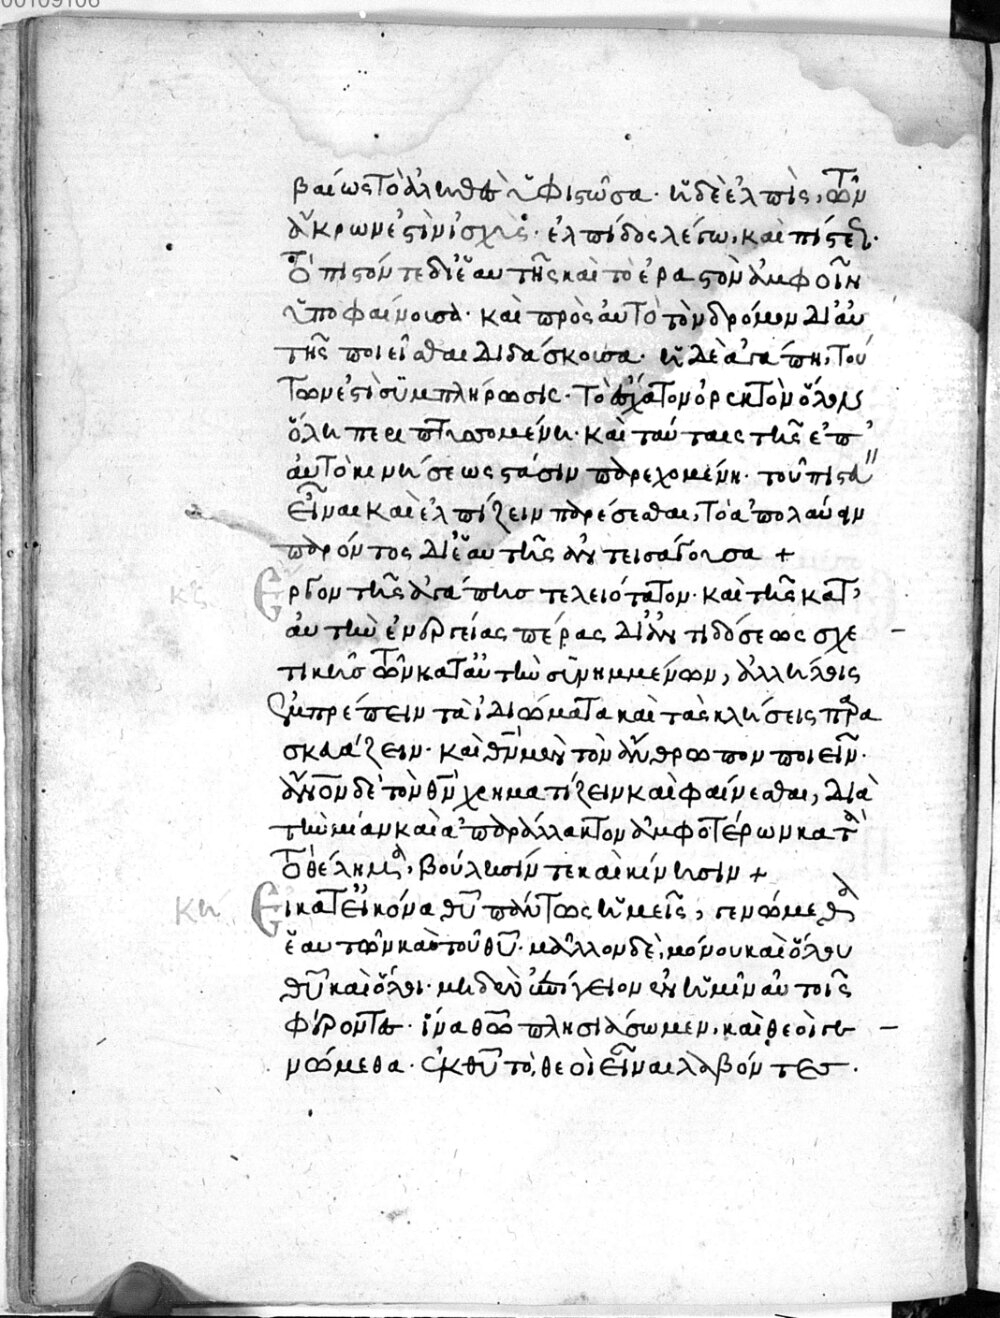 00109106
βαίως τὸ ἀληθὲς ὑφιστῶσα· ἡ δὲ ἐλπὶς, τῶν
ἄκρων ἐστὶν ἰσχὺς· ἐλπίδος λέγω, καὶ πίστεως·
τὸ πιστόν τε δι' ἑαυτῆς καὶ τὸ ἐραστὸν ἀμφοῖν
ὑποφαίνουσα· καὶ πρὸς αὐτὸ τὸν δρόμον δι' αὐ
τῆς ποιεῖσθαι διδάσκουσα· ἡ δὲ ἀγάπη, τού
των ἐστὶ συμπλήρωσις· τὸ ἔσχατον ὀρεκτὸν ὅλον
ὅλη περιπτυσσομένη· καὶ ταύταις τῆς ἐπ'
αὐτὸ κινήσεως στάσιν παρεχομένη· τοῦ πιστ
εῖναι καὶ ἐλπίζειν παρέσεσθαι, τὸ ἀπολαύειν
παρόντος δι' ἑαυτῆς ἀντεισάγουσα +
κζ Ἔργον τῆς ἀγάπης τελειότατον· καὶ τῆς κατ'
αὐτὴν ἐνεργείας πέρας, δι' ἀντιδόσεως σχε
τικῆς τῶν κατ' αὐτὴν συνημμένων, ἀλλήλοις
ἐμπρέπειν τὰ ἰδιώματα καὶ τὰς κλήσεις παρα
σκευάζειν· καὶ θν μὲν τὸν ἄνθρωπον ποιεῖν·
ἄνον δὲ τὸν θν χρηματίζειν καὶ φαίνεσθαι, διὰ
τὴν μίαν καὶ ἀπαράλλακτον ἀμφοτέρων κατὰ
τὸ θέλημα, βούλησίν τε καὶ κίνησιν +
κη Εἰ κατ' εἰκόνα θυ πάντως ἡμεῖς, γενώμεθα
ἑαυτῶν καὶ τοῦ θυ· μᾶλλον δὲ, μόνου καὶ ὅλου
θυ καὶ ὅλοι· μηδὲν ἐπίγειον ἐν ἡμῖν αὐτοῖς
φέροντες· ἵνα θῶ πλησιάσωμεν, καὶ θεοὶ γε
νώμεθα· ἐκ θυ τὸ, θεοὶ εἶναι λαβόντες·